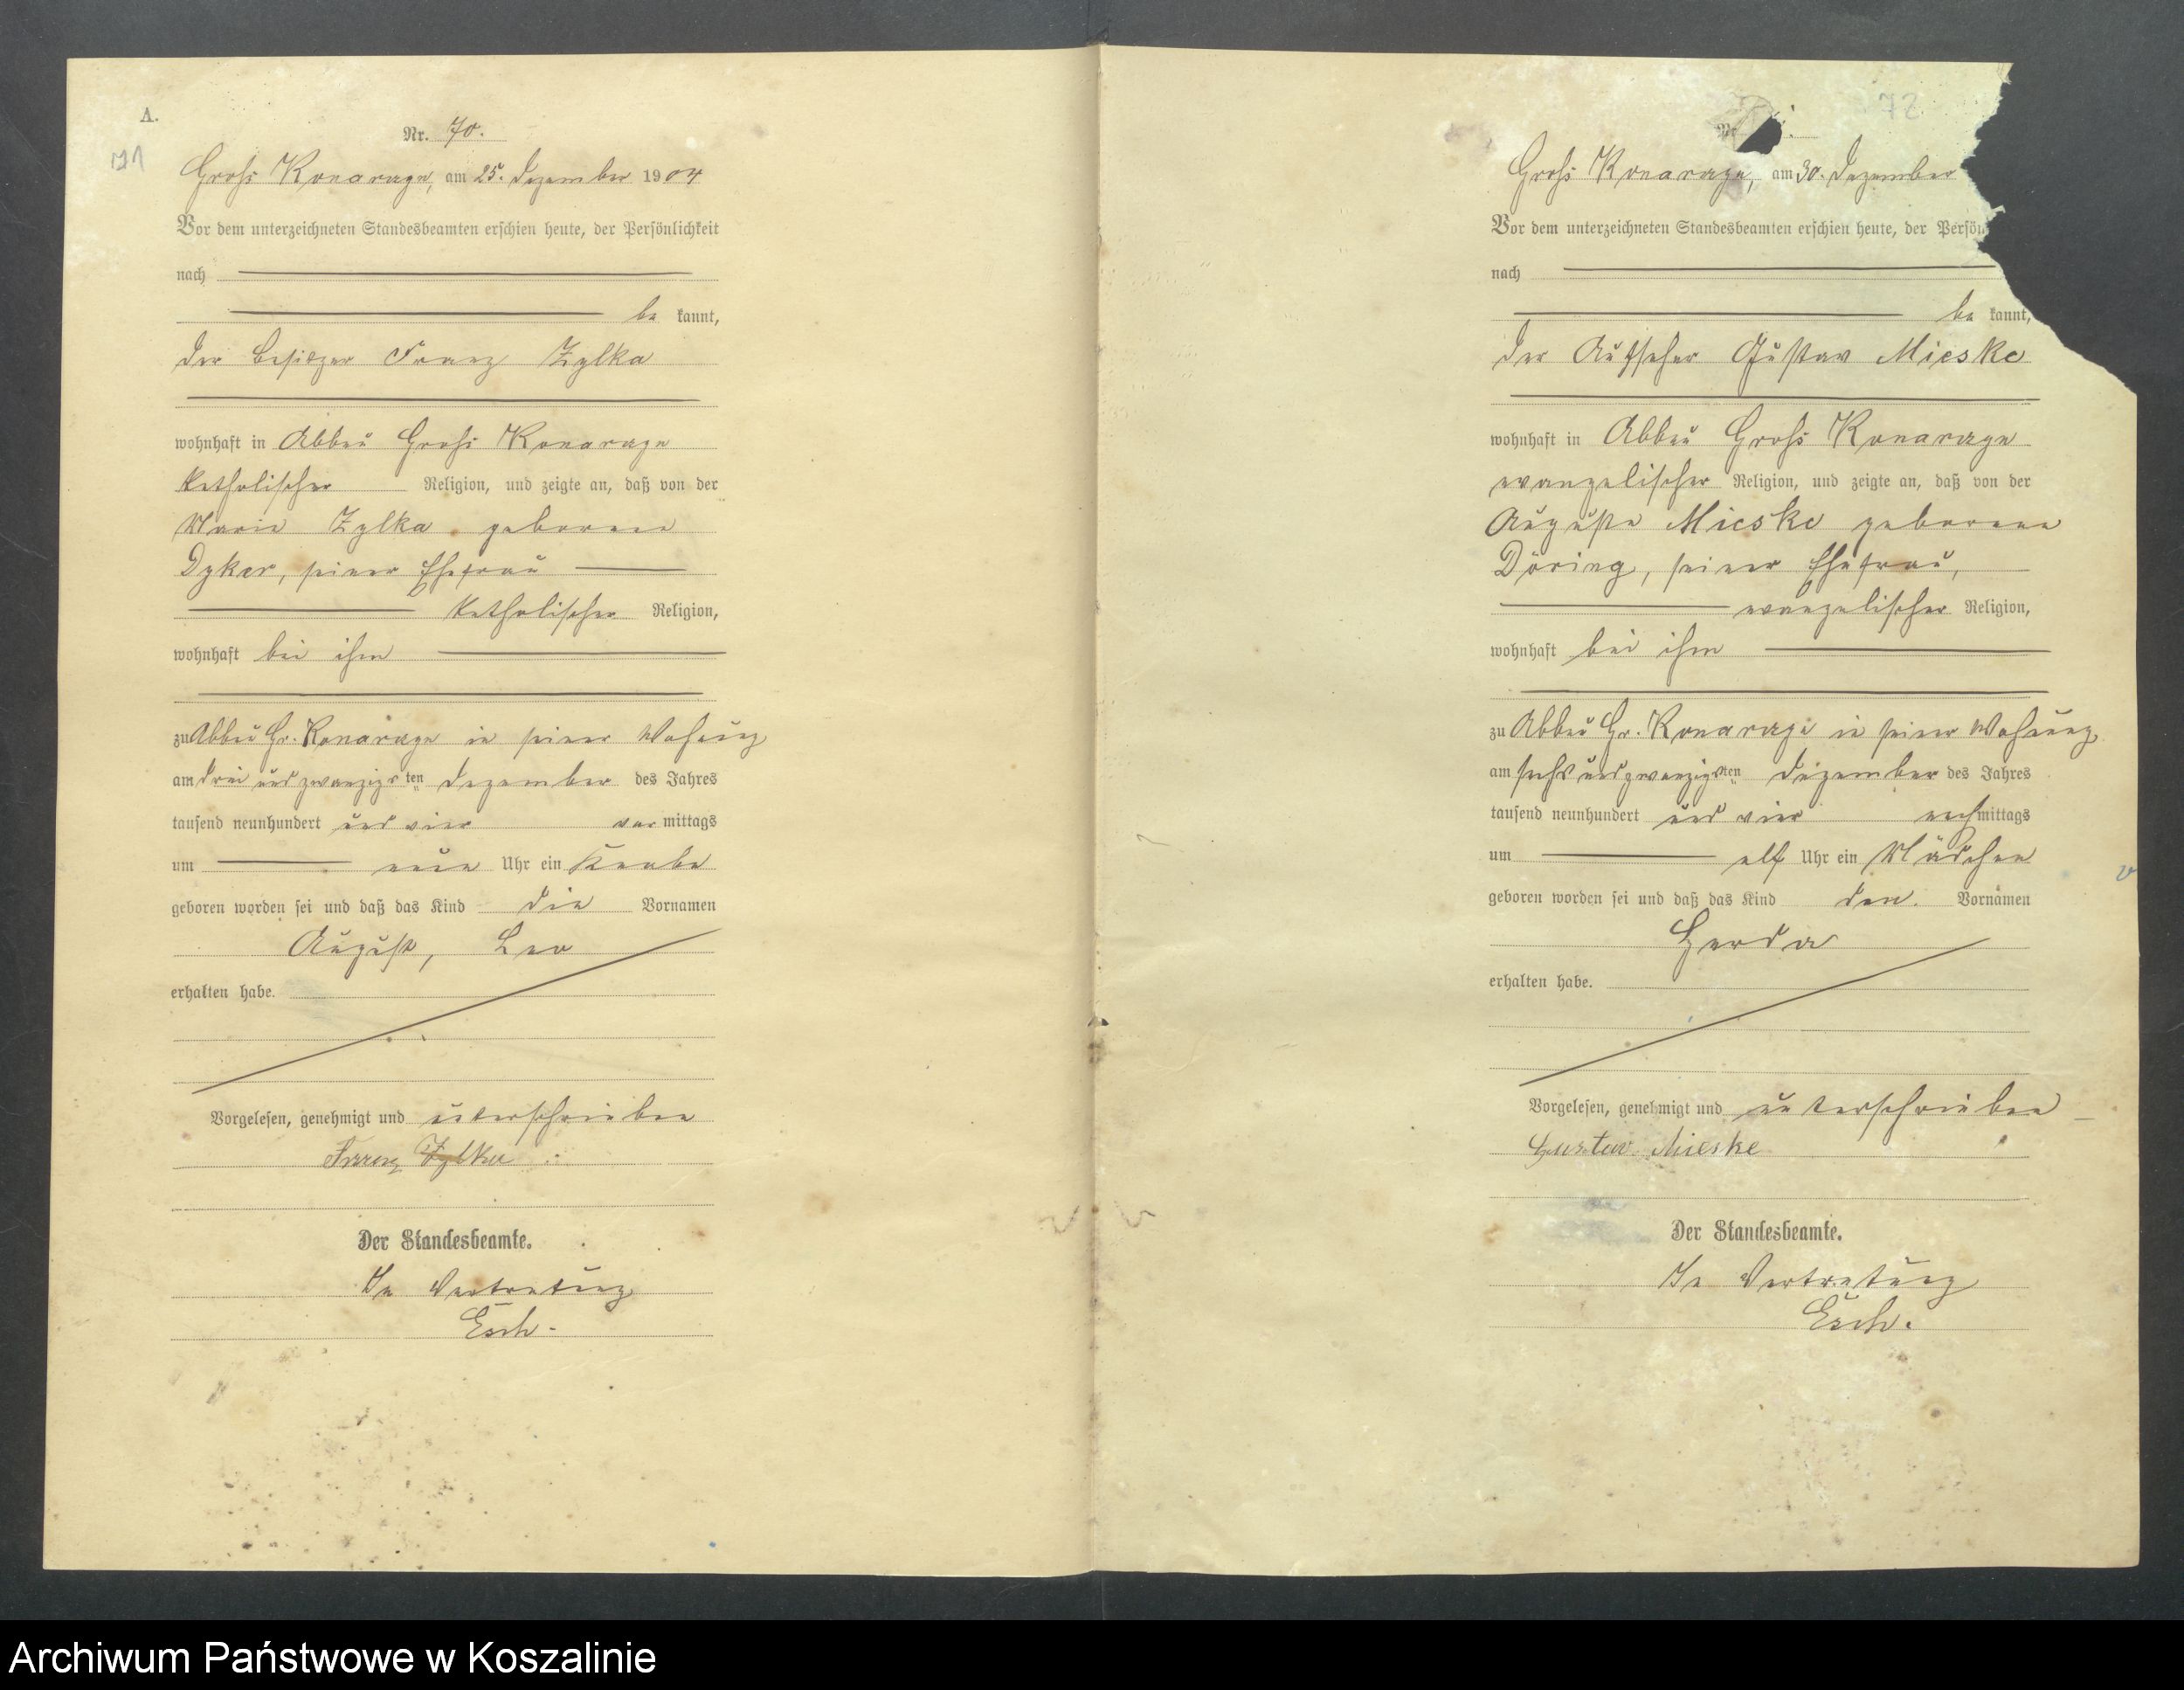 A.
71
Nr. 70.
Groß Konarczyn, am 25. Dezember 1904
Vor dem unterzeichneten Standesbeamten erschien heute, der Persönlichkeit
nach
be kannt,
der Besitzer Franz Zylka
wohnhaft in Abbau Groß Konarczyn
katholischer Religion, und zeigte an, daß von der
Marie Zylka geborene
Dyker, seiner Ehefrau
katholischer Religion,
wohnhaft bei ihm
zu Abbau Gr. Konarczyn in seiner Wohnung
am drei und zwanzigsten Dezember des Jahres
tausend neunhundert und vier vor mittags
um neun Uhr ein Knabe
geboren worden sei und daß das Kind die Vornamen
August, Leo
erhalten habe.
Vorgelesen, genehmigt und unterschrieben
Franz Zylka
Der Standesbeamte.
In Vertretung
Esch.
72
Nr.
Groß Konarczyn, am 30. Dezember
Vor dem unterzeichneten Standesbeamten erschien heute, der Persön
nach
be kannt,
der Aufseher Gustav Mieske
wohnhaft in Abbau Groß Konarczyn
evangelischer Religion, und zeigte an, daß von der
Auguste Mieske geborene
Döring, seiner Ehefrau,
evangelischer Religion,
wohnhaft bei ihm
zu Abbau Gr. Konarczyn in seiner Wohnung
am sechs und zwanzigsten Dezember des Jahres
tausend neunhundert und vier nach mittags
um elf Uhr ein Mädchen
geboren worden sei und daß das Kind den Vornamen
Gerda
erhalten habe.
Vorgelesen, genehmigt und unterschrieben
Gustav Mieske
Der Standesbeamte.
In Vertretung
Esch.
Archiwum Państwowe w Koszalinie